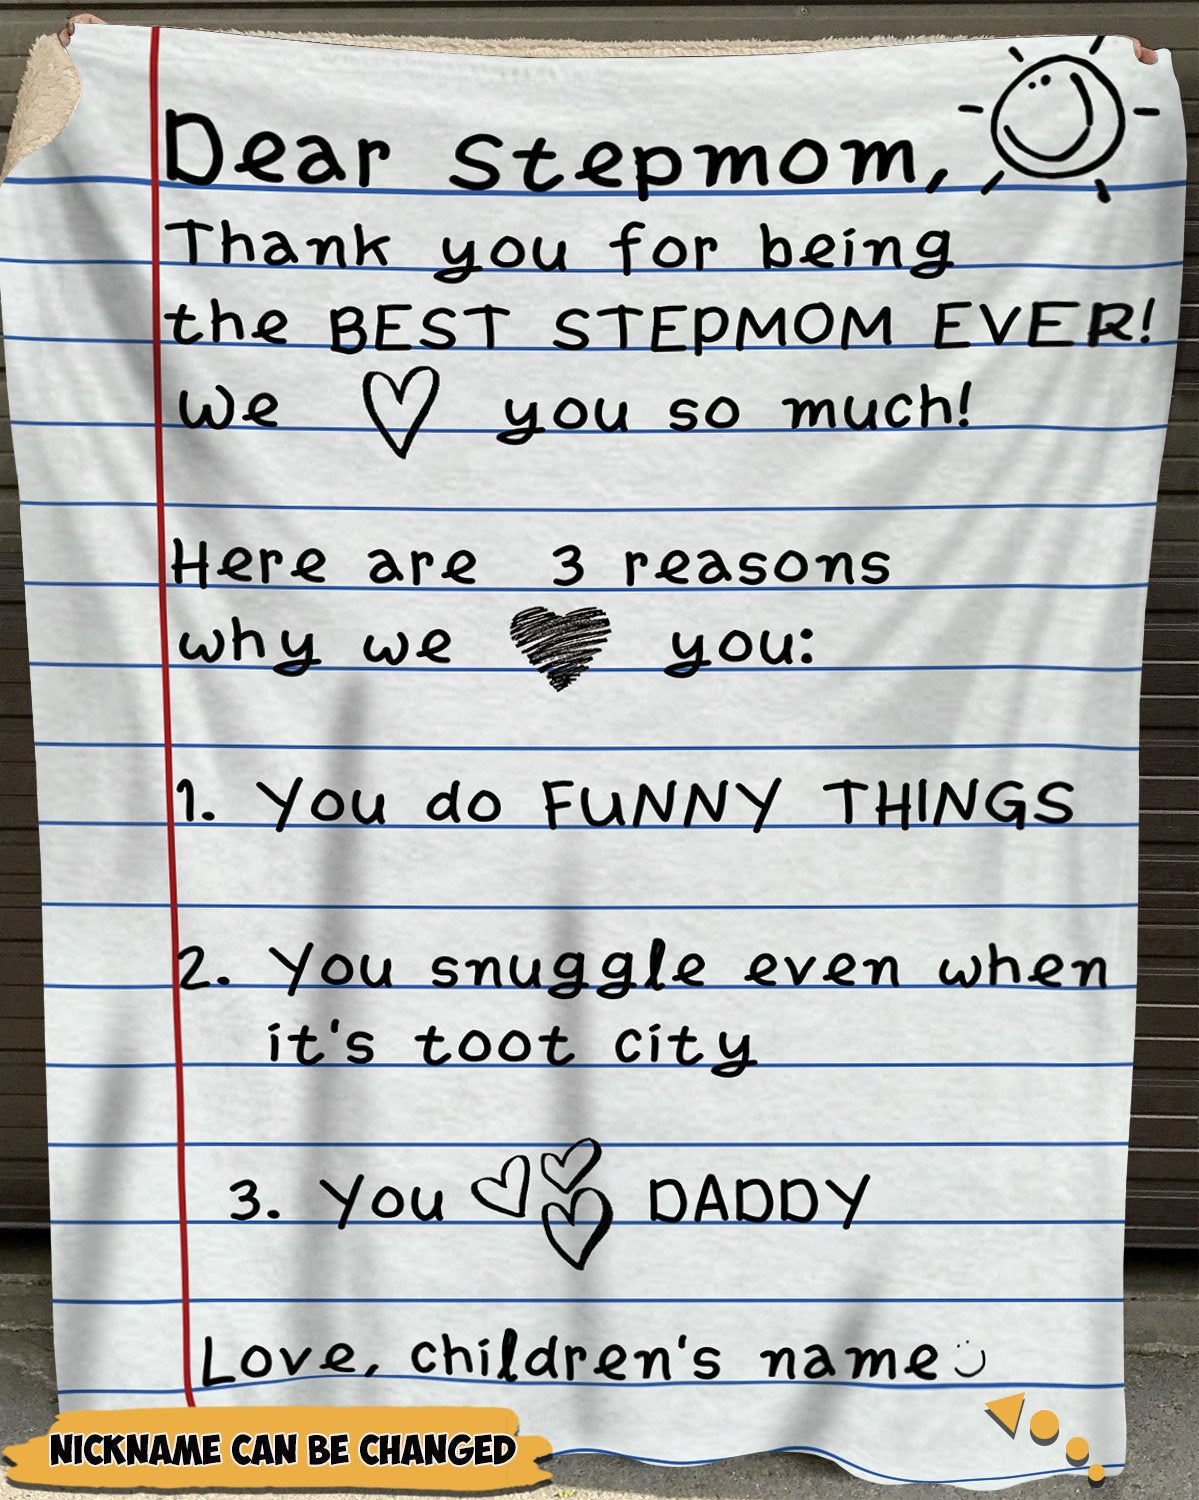 Dear Stepmom,
Thank you for being
the BEST STEPMOM EVER!
We you so much!
Here are 3 reasons
why we you:
1. You do FUNNY THINGS
2. You snuggle even when
it's toot city
3. You DADDY
Love, children's name
NICKNAME CAN BE CHANGED